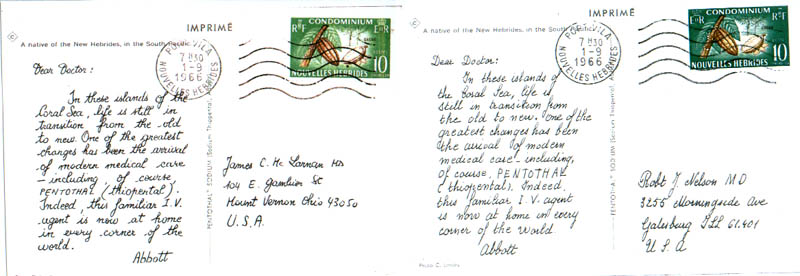 IMPRIMÉ
A native of the New Hebrides, in the South Pacific
PORT-VILA
7 H30
1-9
1966
NOUVELLES HEBRIDES
CONDOMINIUM
RF
EIIR
10
NOUVELLES HÉBRIDES
Dear Doctor:
In these islands of the
Coral Sea, life is still in
transition from the old
to new. One of the greatest
changes has been the arrival
of modern medical care
– including, of course,
PENTOTHAL (thiopental).
Indeed, this familiar I.V.
agent is now at home
in every corner of the
world.
Abbott
PENTOTHAL® SODIUM (Sodium Thiopental)
James C. Mc Larnan MD
104 E. Gambier St
Mount Vernon Ohio 43050
U.S.A.
IMPRIMÉ
A native of the New Hebrides, in the South Pacific
PORT-VILA
7 H30
1-9
1966
NOUVELLES HEBRIDES
CONDOMINIUM
EIIR
RF
10
NOUVELLES HÉBRIDES
Dear Doctor:
In these islands of
the Coral Sea, life is
still in transition from
the old to new. One of the
greatest changes has been
the arrival of modern
medical care – including,
of course, PENTOTHAL
(thiopental). Indeed,
this familiar I.V. agent
is now at home in every
corner of the world.
Abbott
PENTOTHAL® SODIUM (Sodium Thiopental)
Robt J. Nelson MD
3255 Morningside Ave
Galesburg ILL 61401
U S A